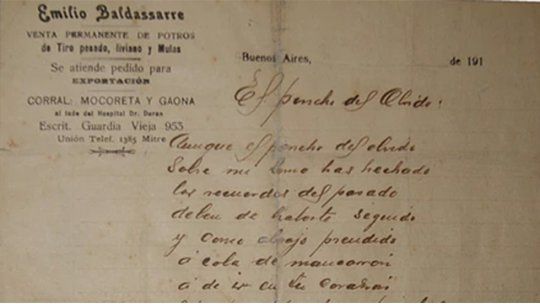 Emilio Baldassarre
VENTA PERMANENTE DE POTROS
de Tiro pesado, liviano y Mulas
Se atiende pedido para
EXPORTACIÓN
CORRAL: MOCORETA Y GAONA
al lado del Hospital Dr. Duran
Escrit. Guardia Vieja 953
Unión Telef. 1385 Mitre
Buenos Aires, de 191
El poncho del Olvido:
Aunque el poncho del olvido
Sobre mi lomo has hechado
los recuerdos del pasado
deben de haberte seguido
y como abrojo prendido
a cola de mancarrón
a de ir en tu